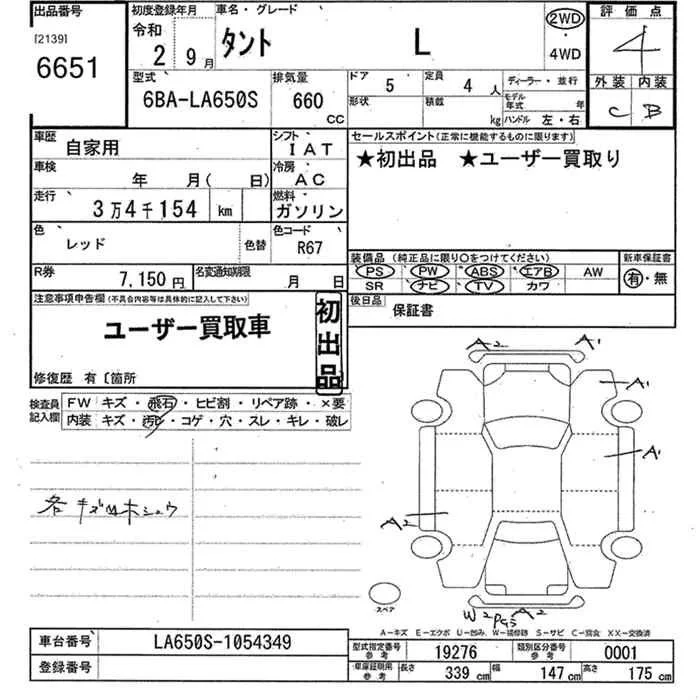 出品番号 初度登録年月 車名・グレード 評価点
[2139] 令和 2 9月 タント L 2WD・4WD 4
6651
型式 排気量 ドア 5 定員 4 人 ディーラー・並行 外装 内装
6BA-LA650S 660 CC 形状 積載 kg モデル年式 年 ハンドル 左・右 C B
車歴 自家用 シフト IAT セールスポイント(正常に機能するものに限ります)
車検 年 月( 日) 冷房 AC ★初出品 ★ユーザー買取り
走行 3万4千154 km 燃料 ガソリン
色 レッド 色替 色コード R67 装備品 (純正品に限り○をつけてください) 新車保証書
PS PW ABS エアB AW 有・無
R券 7,150円 名変通知期限 月 日 SR ナビ TV カワ
注意事項申告欄(不具合内容等は具体的に記入して下さい) 初出品 後日品 保証書
ユーザー買取車
修復歴 有〔箇所
検査員記入欄 FW キズ・飛石・ヒビ割・リペア跡・×要
内装 キズ・汚れ・コゲ・穴・スレ・キレ・破レ
A2 A1
A1
A1
各キズ凹木ショウ
A2
W2 A2
スペア
A-キズ E-エクボ U-凹み W-補修跡 S-サビ C-腐食 XX-交換済
車台番号 LA650S-1054349 型式指定番号参考 19276 類別区分番号参考 0001
登録番号 車庫証明用参考 長さ 339 cm 幅 147 cm 高さ 175 cm